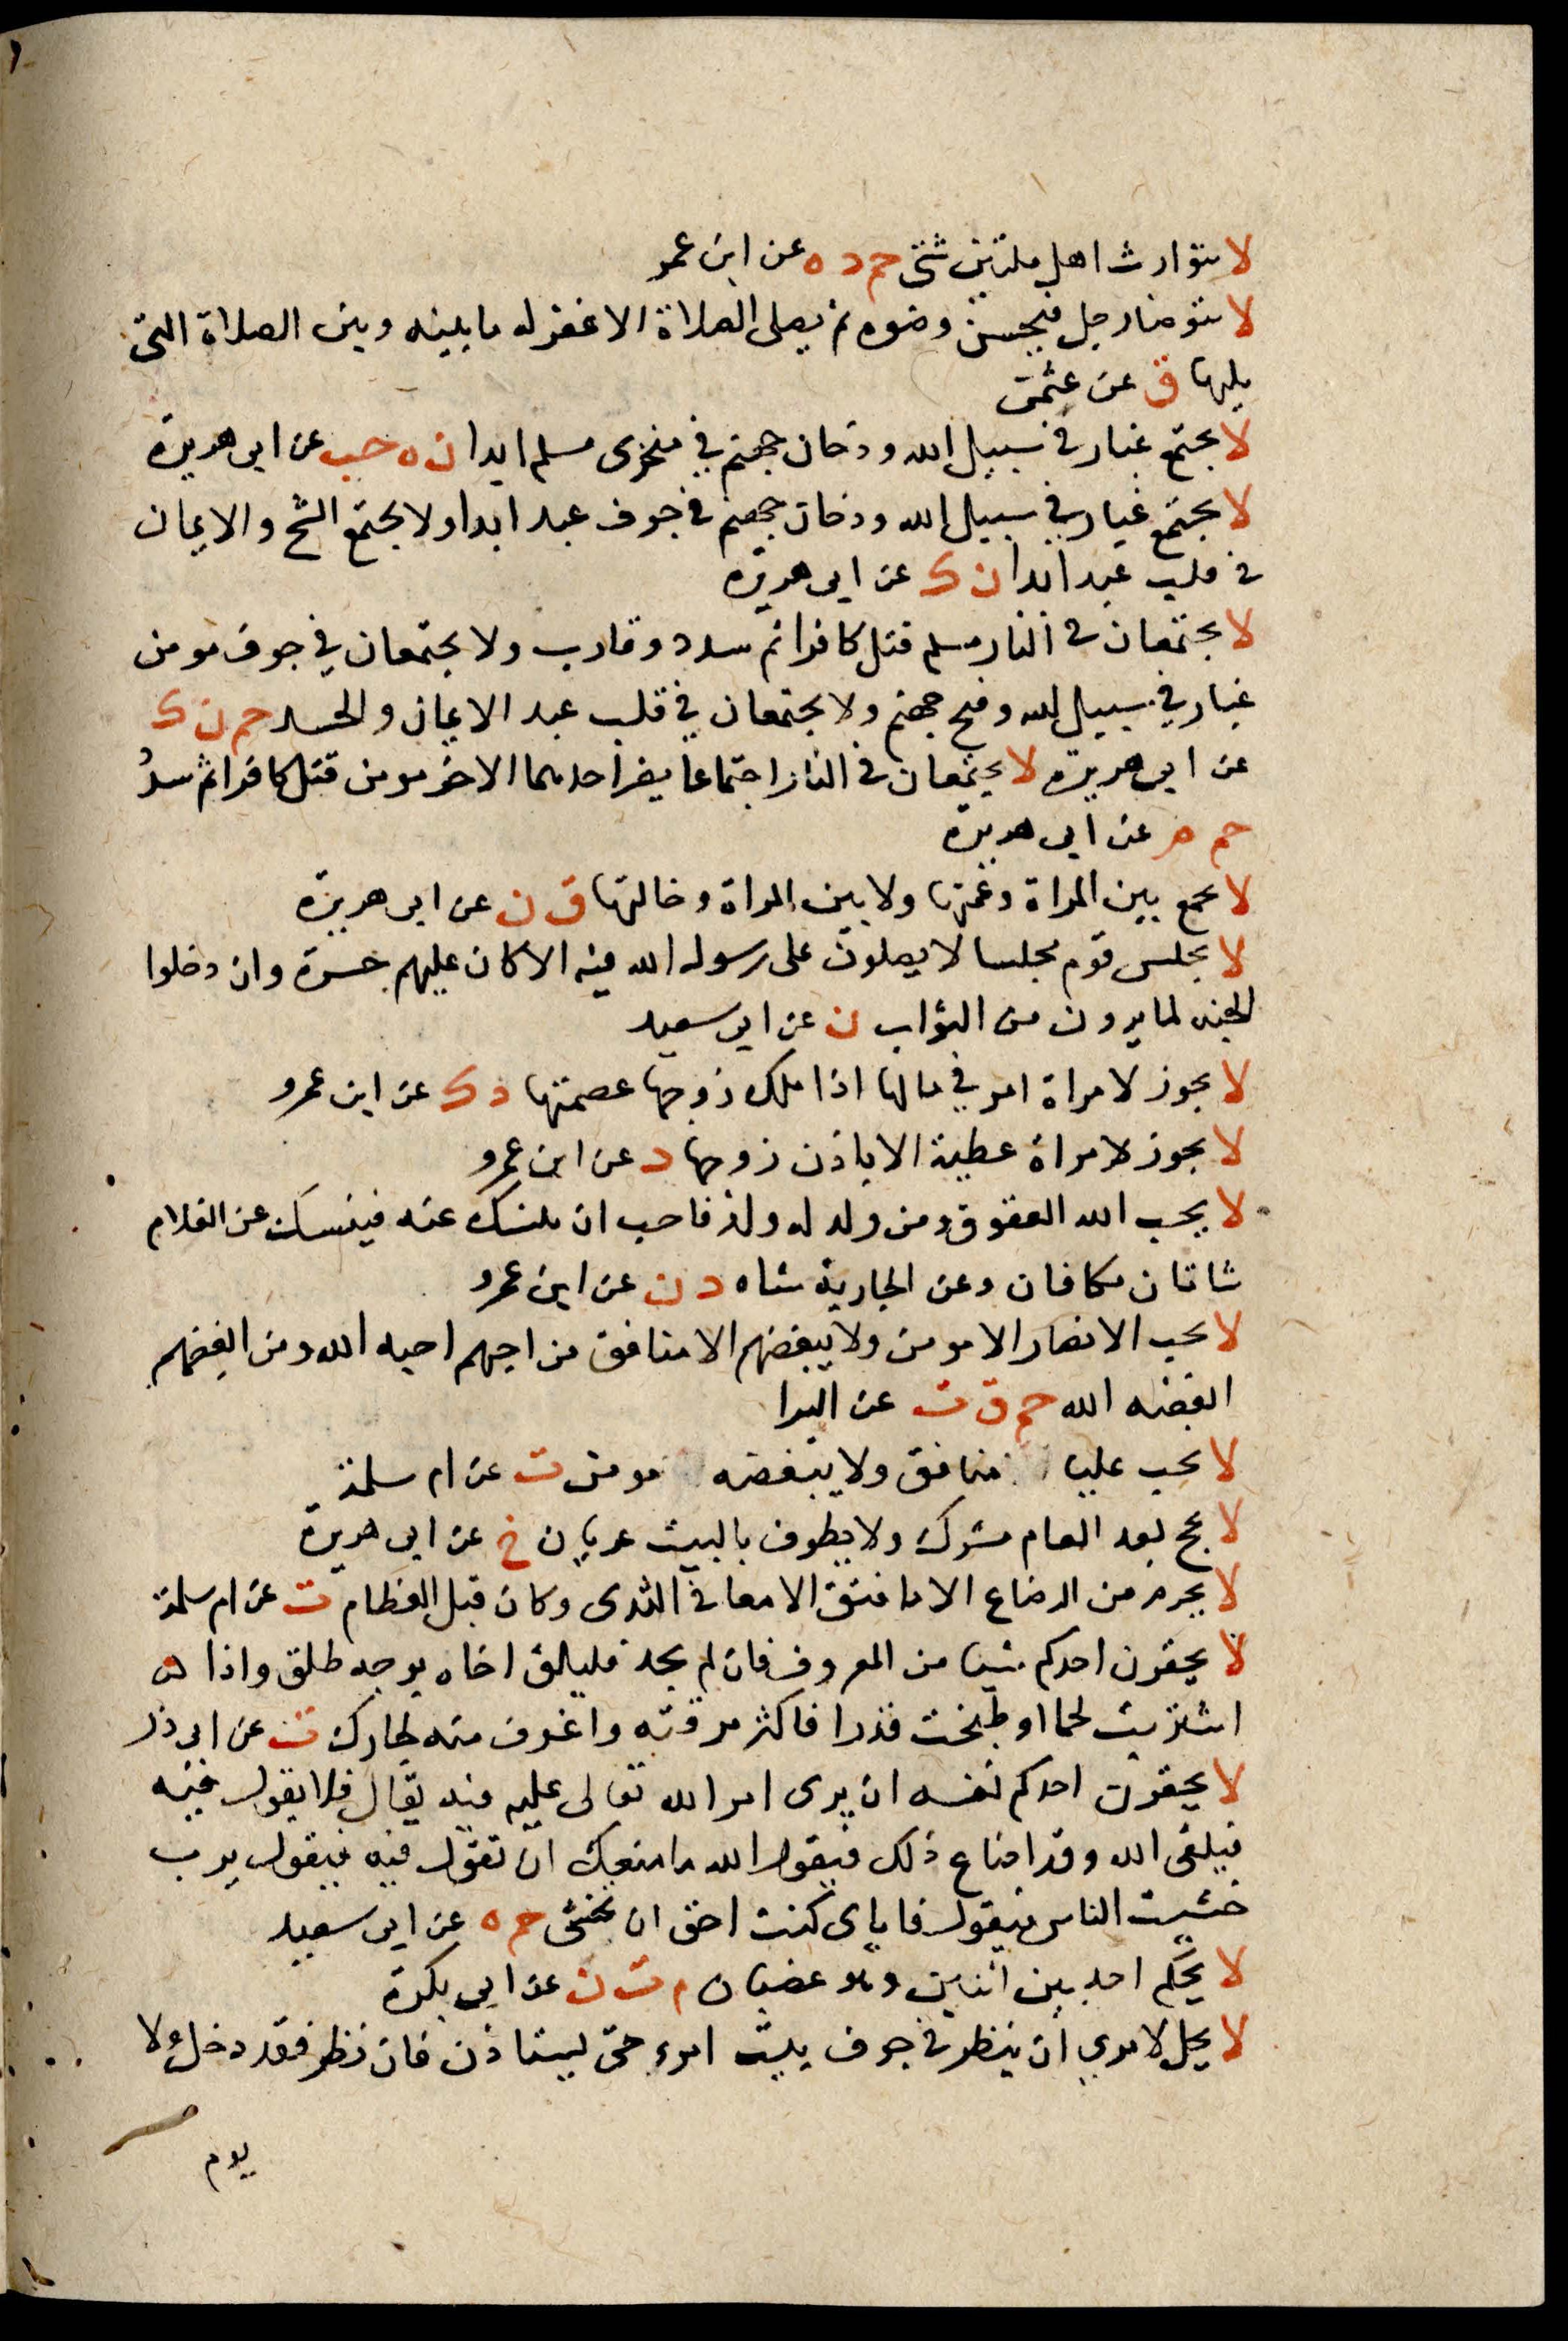 لا يتوارث اهل ملتين شتى حم د ه عن ابن عمر
لا يتوضا رجل فيحسن وضوه ثم يصلى الصلاة الا غفر له ما بينه وبين الصلاة التى
يليها ق عن عثمن
لا يجتمع غبار في سبيل الله ودخان جهنم في منخرى مسلم ابدا ن ه حب عن ابى هريرة
لا يجتمع غبار في سبيل الله ودخان جهنم في جوف عبد ابدا ولا يجتمع الشح والايمان
في قلب عبد ابدا ن ك عن ابى هريرة
لا يجتمعان في النار مسلم قتل كافرا ثم سدد وقارب ولا يجتمعان في جوف مومن
غبار في سبيل الله وفيح جهنم ولا يجتمعان في قلب عبد الايمان والحسد حم ن ك
عن ابى هريرة لا يجتمعان في النار اجتماعا يضر احدهما الاخر مومن قتل كافرا ثم سدد
حم م عن ابى هريرة
لا يجمع بين المراة وعمتها ولا بين المراة وخالتها ق ن عن ابى هريرة
لا يجلس قوم مجلسا لا يصلون على رسول الله فيه الا كان عليهم حسرة وان دخلوا
الجنه لما يرون من الثواب ن عن ابى سعيد
لا يجوز لامراة امر في مالها اذا ملك زوجها عصمتها د ك عن ابن عمرو
لا يجوز لامراة عطية الا باذن زوجها د عن ابن عمرو
لا يحب الله العقوق ومن ولد له ولد فاحب ان ينسك عنه فينسك عن الغلام
شاتان مكافان وعن الجارية شاه د ن عن ابن عمرو
لا يحب الانصار الا مومن ولا يبغضهم الا منافق من احبهم احبه الله ومن ابغضهم
ابغضه الله حم ق ت عن البرا
لا يحب عليا منافق ولا يبغضه مومن ت عن ام سلمة
لا يحج بعد العام مشرك ولا يطوف بالبيت عريان خ عن ابى هريرة
لا يحرم من الرضاع الا ما فتق الامعا في الثدى وكان قبل الفطام ت عن ام سلمة
لا يحقرن احدكم شيا من المعروف فان لم يجد فليلق اخاه بوجه طلق واذا
اشتريت لحما او طبخت قدرا فاكثر مرقته واغرف منه لجارك ت عن ابى ذر
لا يحقرن احدكم نفسه ان يرى امر الله تعالى عليه فيه يقال فلا يقول فيه
فيلقى الله وقد اضاع ذلك فيقول الله ما منعك ان تقول فيه فيقول يرب
خشيت الناس فيقول فاياى كنت احق ان تخشى حم ه عن ابى سعيد
لا يحكم احد بين اثنين وهو غضبان م ت ن عن ابى بكرة
لا يحل لامرى ان ينظر في جوف بيت امرء حتى يستاذن فان نظر فقد دخل ولا
يوم